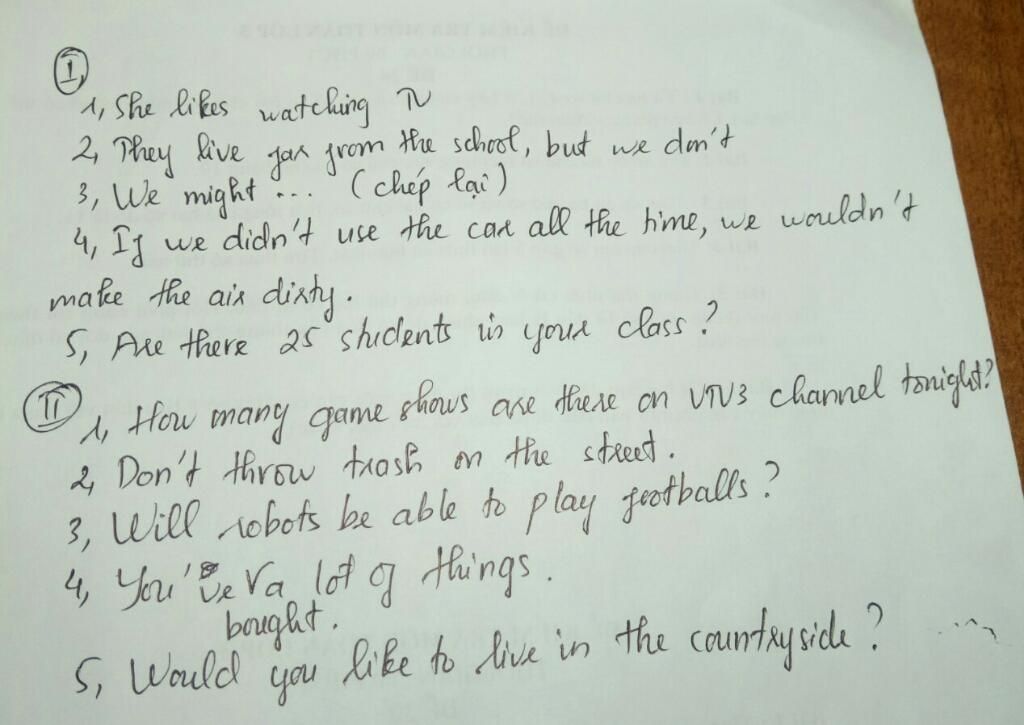 I
1, She likes watching TV
2, They live far from the school, but we don't
3, We might ... (chép lại)
4, If we didn't use the car all the time, we wouldn't
make the air dirty.
5, Are there 25 students in your class?
II
1, How many game shows are there on VTV3 channel tonight?
2, Don't throw trash on the street.
3, Will robots be able to play footballs?
4, You've √ a lot of things.
bought.
5, Would you like to live in the countryside?